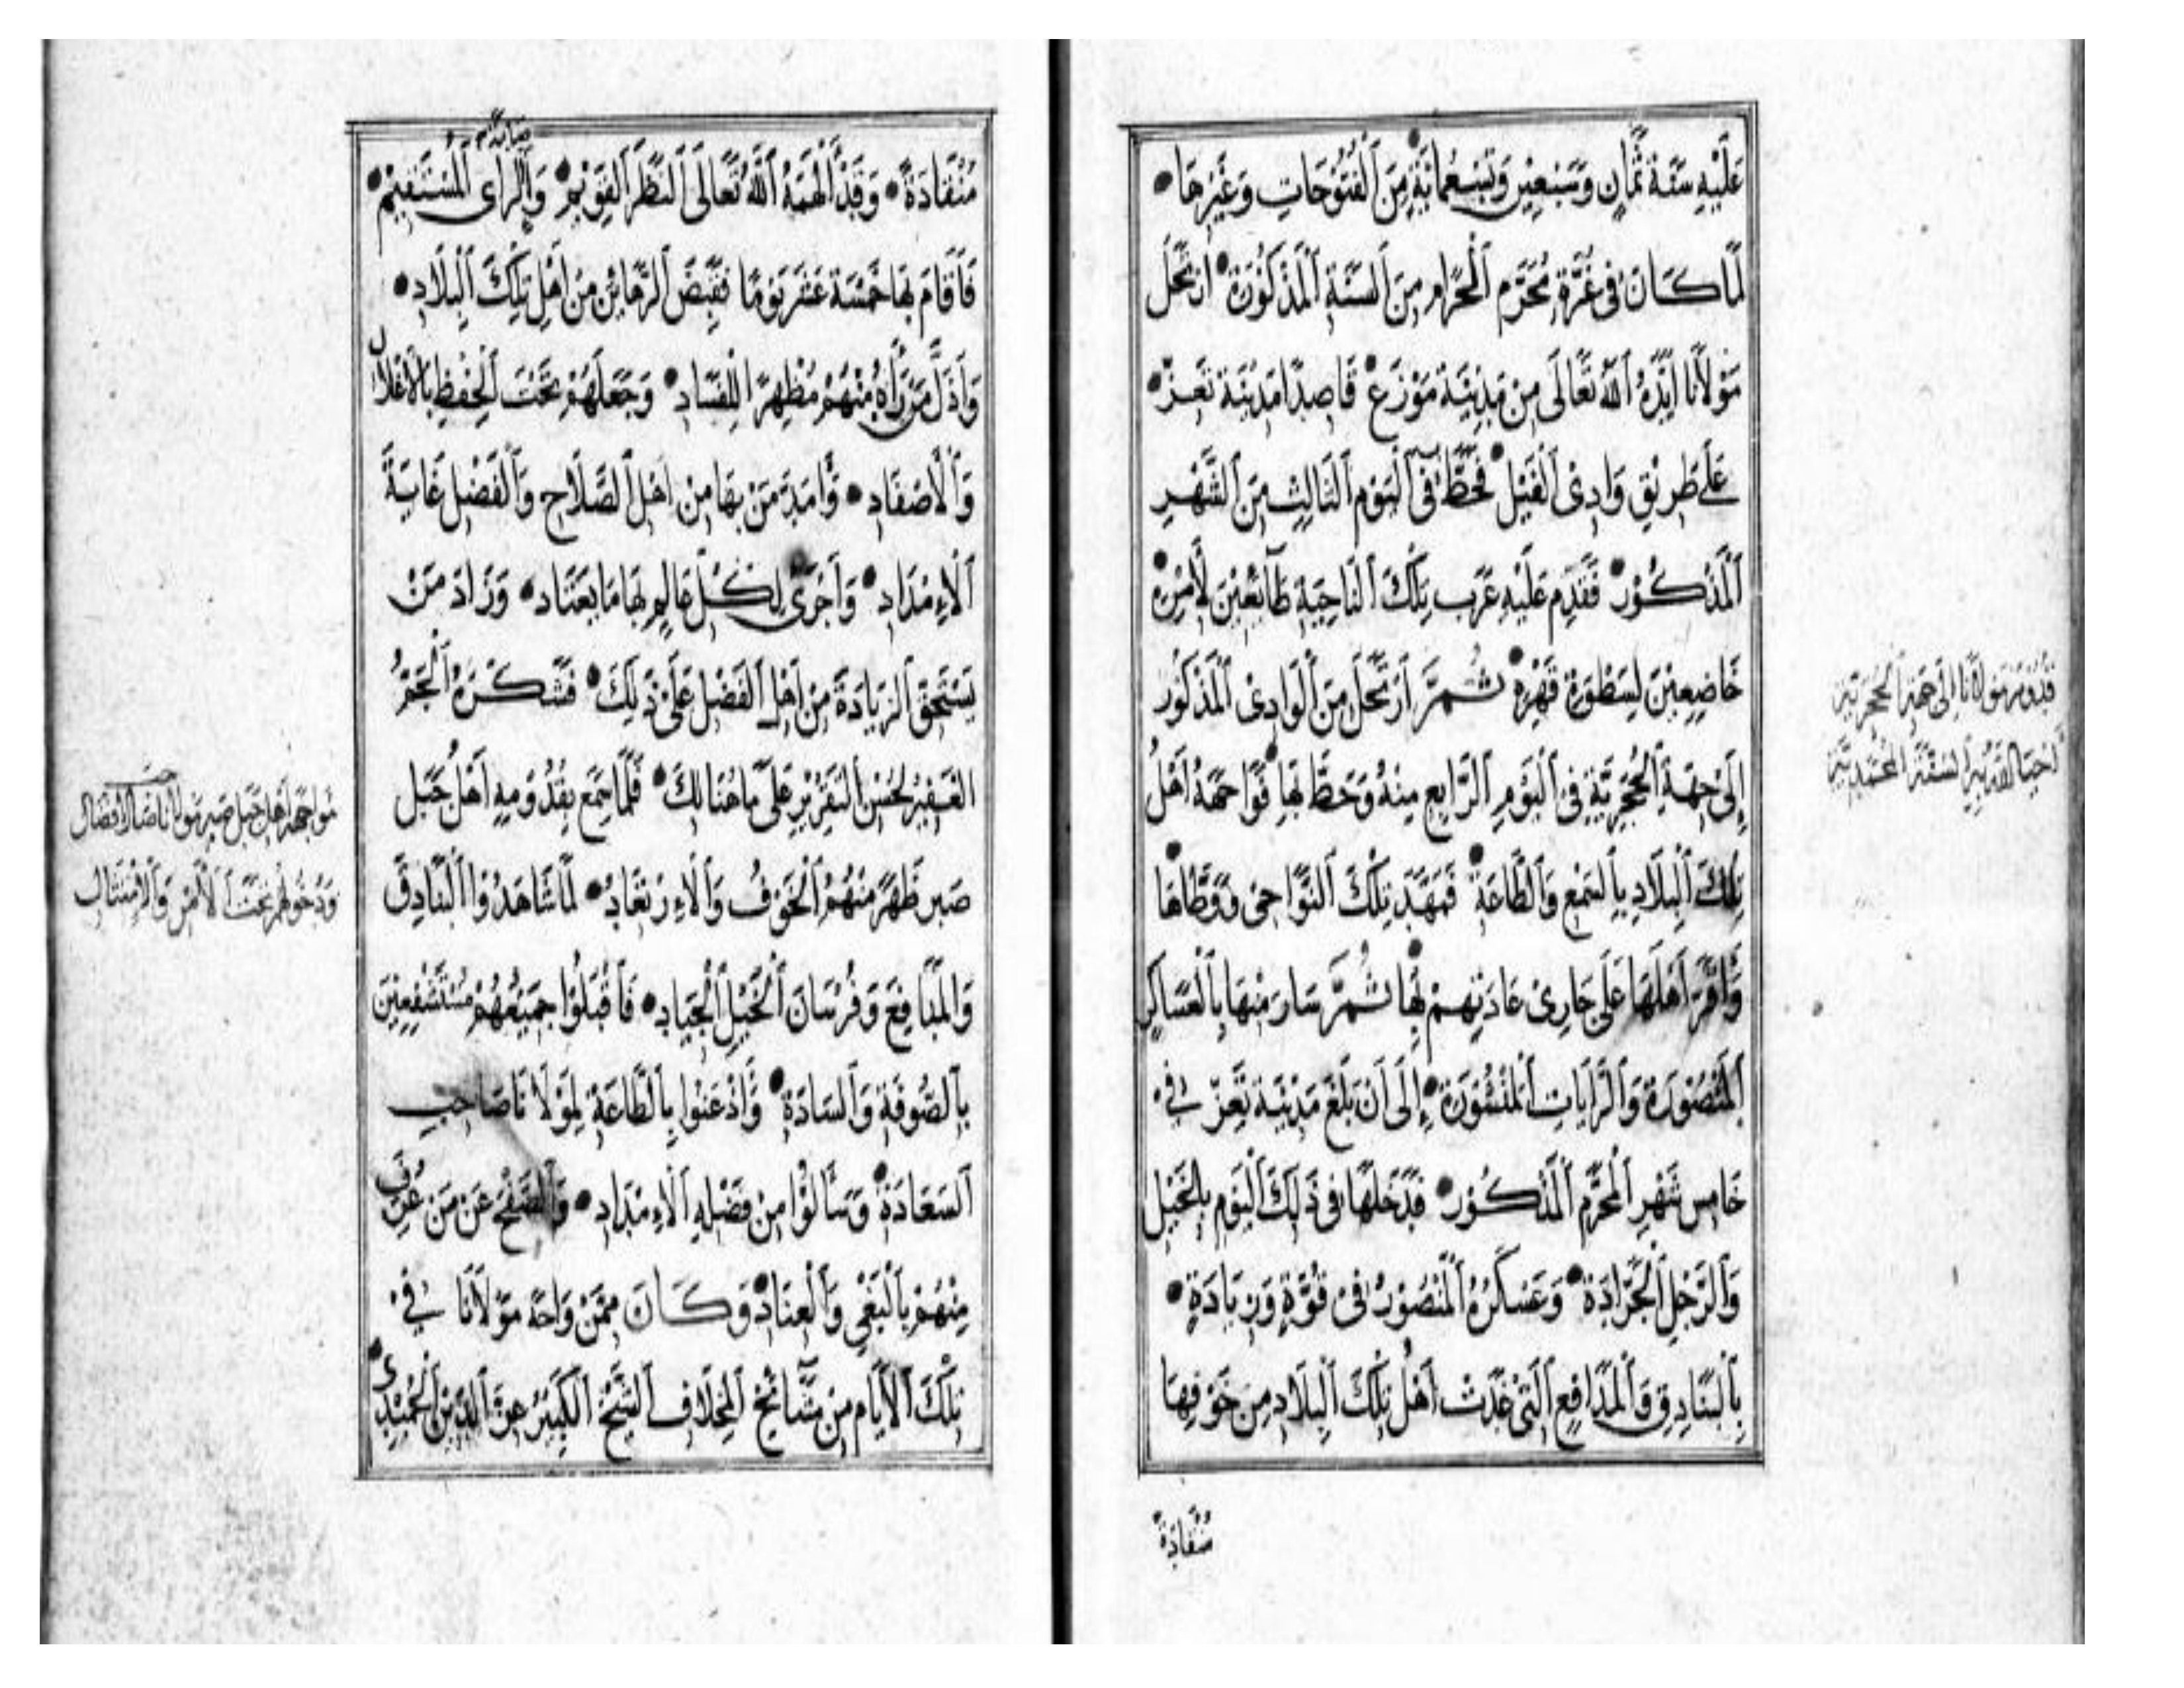 عَلَيْهِ سَنَة ثَمَانٍ وَسَبْعِيْنَ وَتِسْعِمائةٍ مِنَ اَلْفُتُوْحَاتِ وَغَيْرِهَا •
لَمَّا كَانَ فى غُرَّةِ مُحَرَّمِ اَلْحَرَامِ مِنَ اَلسَّنَةِ اَلْمَذْكُوْرَةِ • ارتَحَلَ
مَوْلَانَا ايَّدَهُ اَللهُ تَعَالَى مِنْ مَدِيْنَةِ مَوْزَعَ • قَاصِدًا مَدِيْنَةَ تَعِزّ •
عَلَى طَرِيْقِ وَادِىْ اَلْفَيْل • فَحَطَّ فى اَلْيَوْمِ اَلثَالِثِ مِنَ اَلشَّهْرِ
اَلْمَذْكُوْر • فَقَدِمَ عَلَيْهِ عَرَب تِلْكَ اَلنَاحِيَةِ طَائِعْيْنَ لِأَمْرِهِ •
خَاضِعِيْنَ لِسَطْوَةِ قَهْرِهِ • ثُمَّ ارْتَحَلَ مِنَ اَلْوَادِىْ اَلْمَذْكُوْر
إِلَىْ جِهَةِ اَلْحُجَرِيَّةِ فِىْ اَلْيَوْمِ اَلرَّابِعِ مِنْهُ وَحَطَّ بِهَا • فَوَاجَهَهُ اَهْلُ
تِلْكَ اَلْبِلَادِ بِاَلسَمْعِ وَاَلطَّاعَةِ • فَمَهَّدَ تِلْكَ اَلنَّوَاحِى وَوَطَّاهَا •
وَاَقَرَّ اَهْلَهَا عَلَى جَارِىْ عَادَتِهِمْ بِهَا • ثُمَّ سَارَ مِنْهَا بِاَلْعَسَاكِرِ
اَلْمَنْصُوْرَةِ وَاَلرَّايَاتِ اَلمَنْشُوْرَةِ • إِلَى اَنْ بَلَغَ مَدِيْنَةَ تَعِزّ فِىْ
خَامِسِ شَهْرِ اَلْمُحَرَّمِ اَلْمَذْكُوْر • فَدَخَلَهَا فى ذَلِكَ اَلْيَوْمِ بِاَلْخَيْلِ
وَاَلرَّجْلِ اَلْجَرَّارَةِ • وَعَسْكَرُهُ اَلْمَنْصُوْرُ فِىْ قُوَّةٍ وَزِيَادَةٍ •
بِاَلْبَنَادِقِ وَاَلْمَدَافِعِ اَلَّتِىْ غَدَتْ اَهْلُ تِلْكَ اَلْبِلَادِ مِنْ خَوْفِهَا
مُنْقَادَةً
قُدُوْمُ مَوْلَانَا إِلَى جِهَةِ اَلْحُجَرِيَّةِ
مُنْقَادَةً • وَقَدْ اَلْهَمَهُ اَللهُ تَعَالَى اَلنَّظَرَ اَلقَوِيْمَ • وَاَلرَاىَ اَلْمُسْتَقِيْمَ •
فَاَقَامَ بِهَا خَمْسَةَ عَشَرَ يَوْمًا فَقَبَضَ اَلرَّهَائِنَ مِنْ اَهْلِ تِلْكَ اَلْبِلَادِ •
وَاَذَلَّ مَنْ رَّآهُ مِنْهُمْ مُظْهِرًا لِلْفَسَادِ • وَجَعَلَهُمْ تَحْتَ اَلْحِفْظِ بِالْاَغْلَالِ
وَاَلْأَصْفَادِ • وَاَمَدَّ مَنْ بِهَا مِنْ اَهْلِ اَلصَّلَاحِ وَاَلْفَضْلِ غَايَةَ
اَلْاِمْدَادِ • وَاَجْرَى لِكُلِّ عَالِمٍ بِهَا مَا يَعْتَاد • وَزَادَ مَنْ
يَسْتَحِقُّ اَلزِيَادَةَ مِنْ اَهْلِ اَلْفَضْلِ عَلَى ذَلِكَ • فَشَكَرَهُ اَلْجَمُّ
الغَفِيْرُ لِحُسْنِ اَلتَقْرِيْرِ عَلَى مَا هُنَالِكَ • فَلَمَّا سَمِعَ بِقُدُوْمِهِ اَهْلُ جَبَل
صَبِر ظَهَرَ مِنْهُمُ اَلْخَوْفُ وَاَلْاِرْتِعَادُ • لَمَّا شَاهَدُوْا اَلْبَنَادِقَ
وَالْمَدَافِعَ وَفُرْسَانَ اَلْخَيْلِ اَلْجِيَادِ • فَاَقْبَلُوْا جَمِيْعُهُمْ مُسْتَشْفِعِيْنَ
بِاَلصُّوفَةِ وَاَلسَادَةِ • وَأَذْعَنُوا بِاَلطَّاعَةِ لِمَوْلَانَا صَاحِبِ
اَلسَعَادَةِ • وَسَأَلُوْا مِنْ فَضْلِهِ اَلْاِمْدَادِ • وَاَلصَّفْحَ عَنْ مَنْ عُرِفَ
مِنْهُمْ بِاَلْبَغْىِ وَاَلْعِنَادِ • وَكَانَ مِمَّنْ وَاجَهَ مَوْلَانَا فِىْ
تِلْكَ اَلْاَيَّامِ مِنْ مَشَائِخِ اَلْمِخْلَافِ اَلشَّيْخُ اَلْكَبِيْرُ عِزُّ اَلدِّيْنِ اَلْحُمَيْدِىّ •
مواجهة اهل جبل صبر مولانا
وَدُخُولُهُمْ تَحْتَ اَلْأَمْرِ وَاَلاِمْتِثَالِ